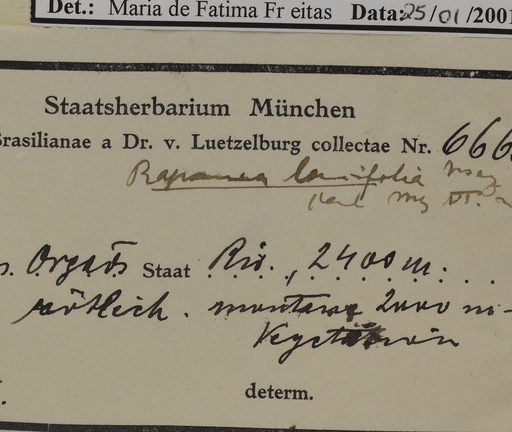 Det.: Maria de Fatima Fr eitas Data: 25/01/2001
Staatsherbarium München
Brasilianae a Dr. v. Luetzelburg collectae Nr. 666
Rapanea lancifolia Mez
Mez
Orgãos Staat Rio., 2400 m.
rötlich. montane 2000 m-
Vegetation
determ.